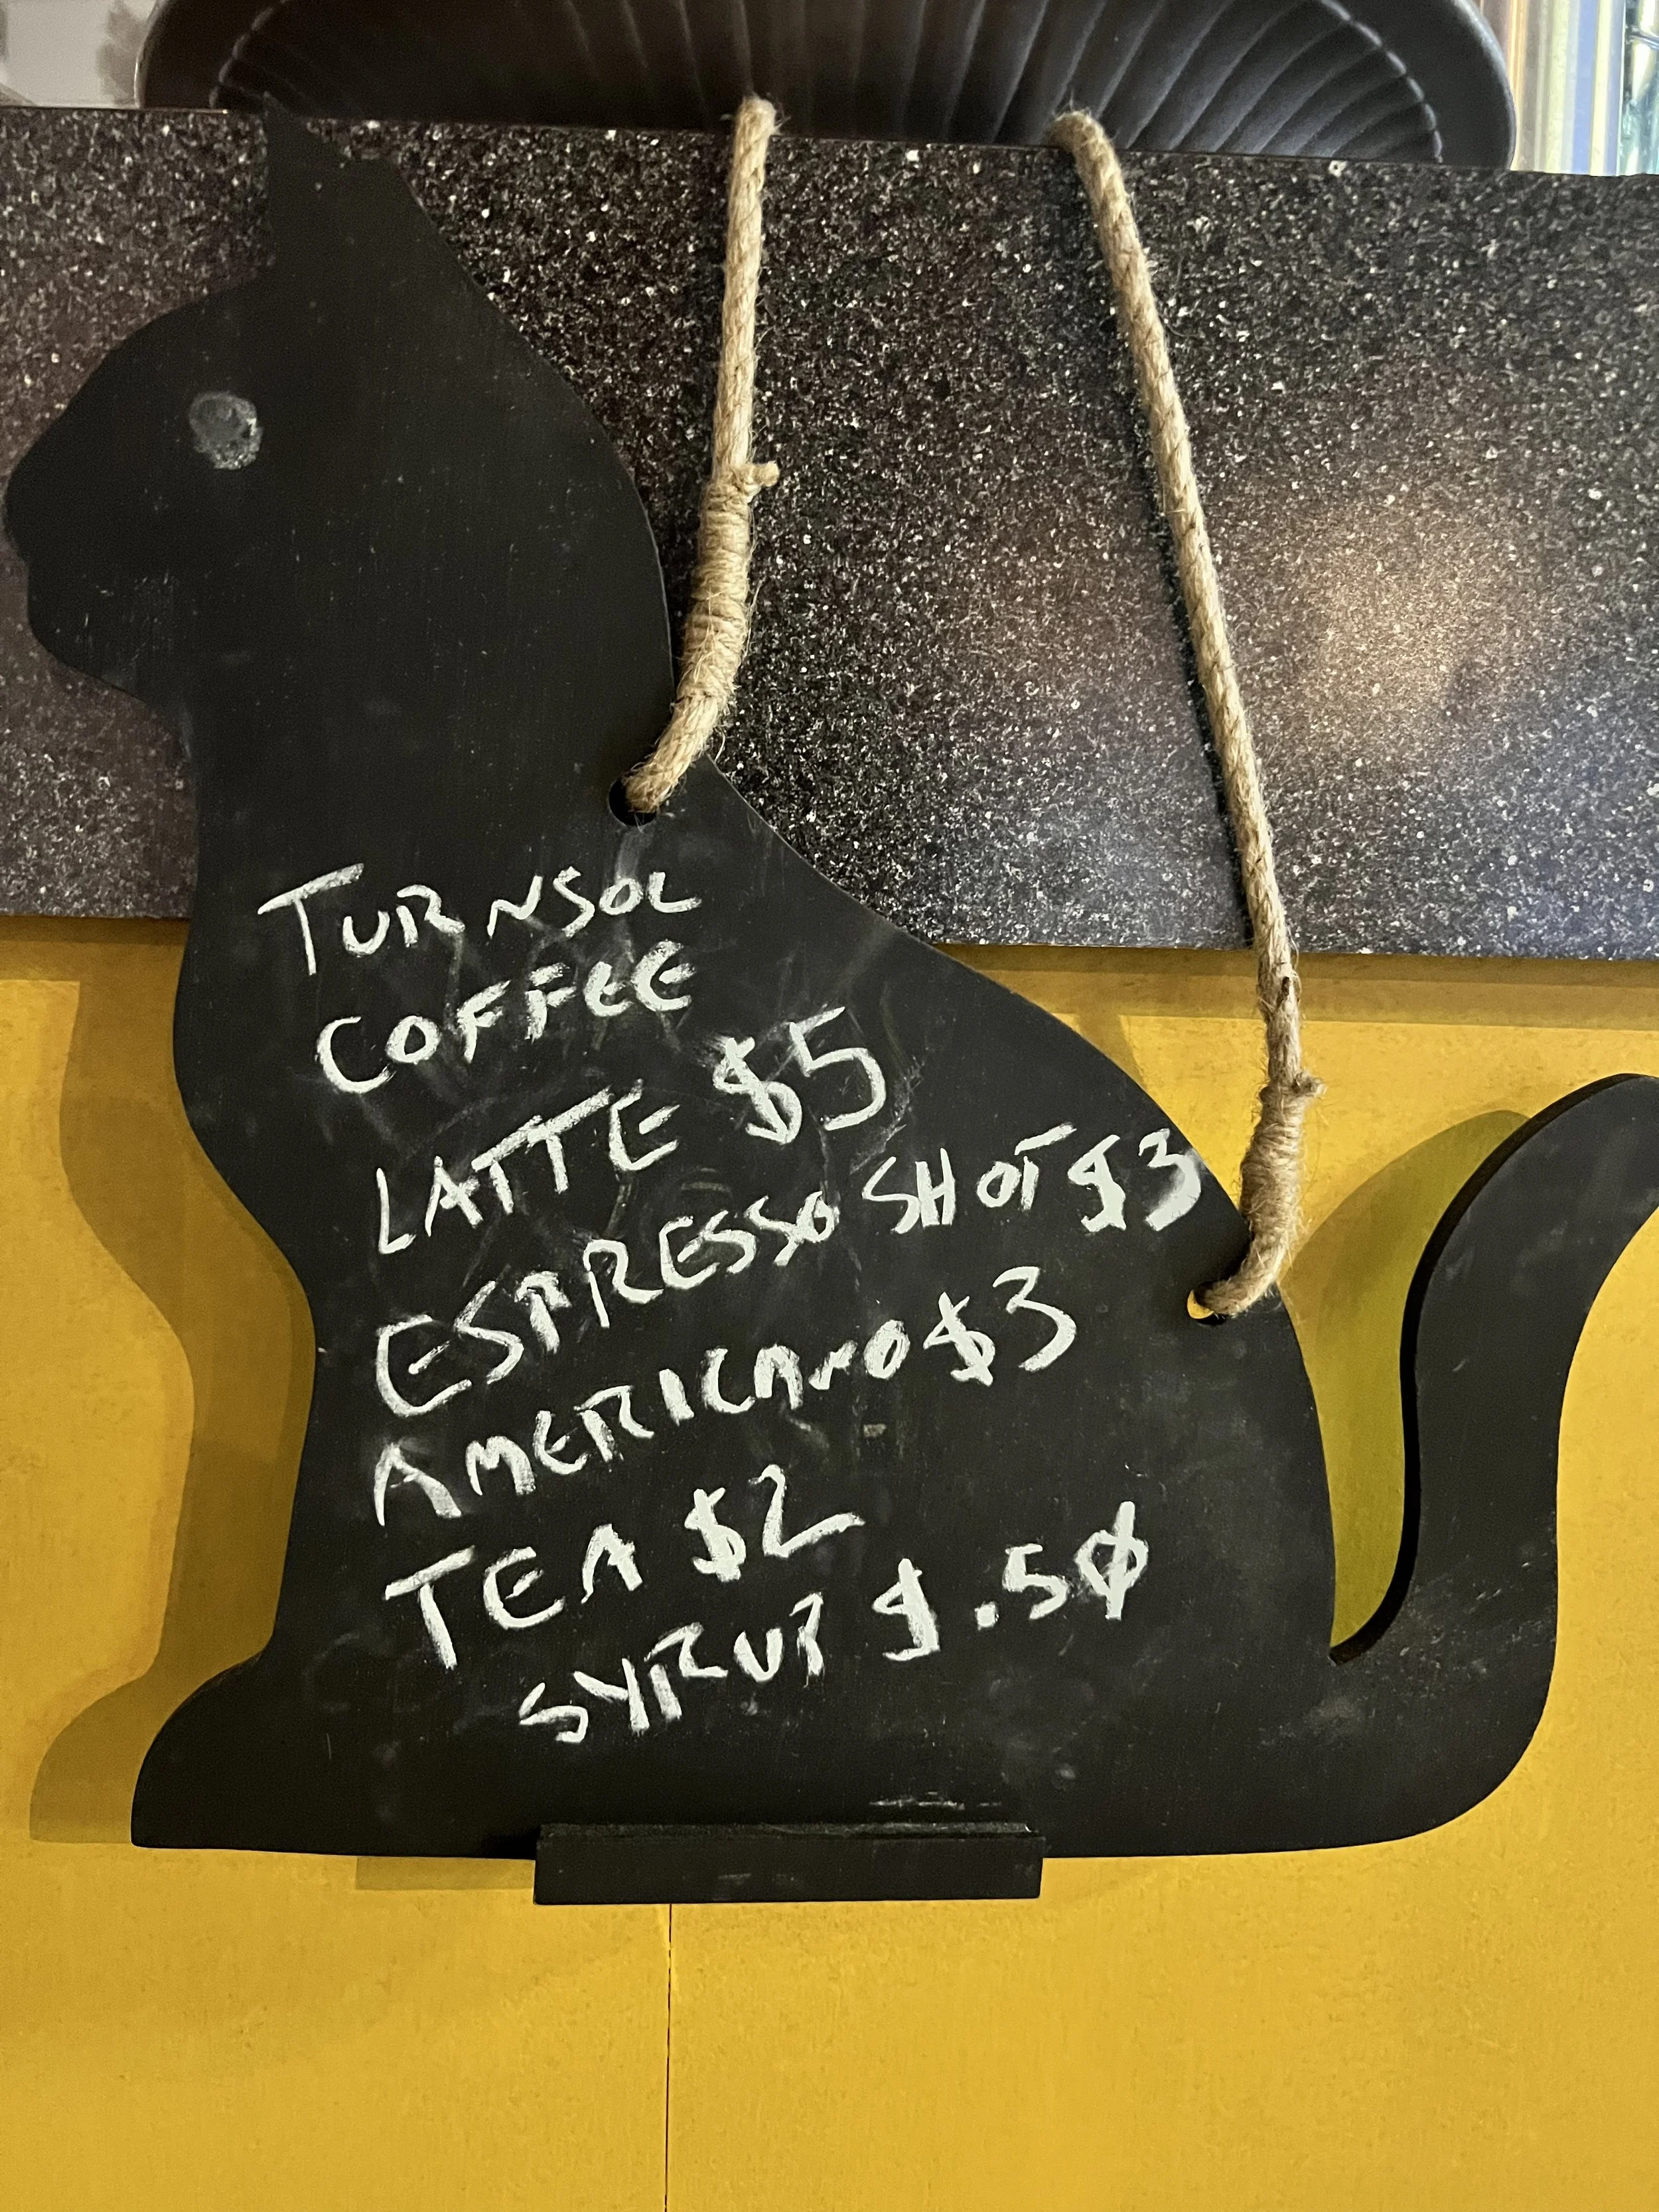 TURNSOL
COFFEE
LATTE $5
ESPRESSO SHOT $3
AMERICANO $3
TEA $2
SYRUP $.50